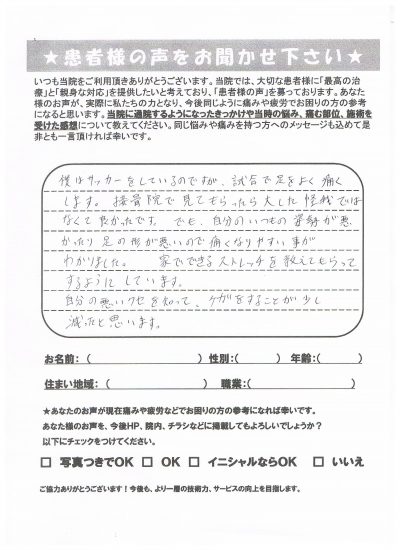 ★患者様の声をお聞かせ下さい★
いつも当院をご利用頂きありがとうございます。当院では、大切な患者様に「最高の治
療」と「親身な対応」を提供したいと考えており、「患者様の声」を募っております。あなた
様のお声が、実際に私たちの力となり、今後同じように痛みや疲労でお困りの方の参考
になると思います。当院に通院するようになったきっかけや当時の悩み、痛む部位、施術を
受けた感想について教えてください。同じ悩みや痛みを持つ方へのメッセージも込めて是
非とも一言頂ければ幸いです。
僕はサッカーをしているのですが、試合で足をよく痛く
します。接骨院で見てもらったら大した怪我では
なくて良かったです。でも、自分のいつもの姿勢が悪
かったり足の形が悪いので痛くなりやすい事が
わかりました。家でできるストレッチを教えてもらって
するようにしています。
自分の悪いクセを知って、ケガをすることが少し
減ったと思います。
お名前：（　　　）性別:(　　) 年齢:(　　)
住まい地域：（　　　）職業:(　　　)
★あなたのお声が現在痛みや疲労などでお困りの方の参考になれば幸いです。
あなた様のお声を、今後HP、院内、チラシなどに掲載してもよろしいでしょうか？
以下にチェックをつけてください。
□ 写真つきでOK □ OK □ イニシャルならOK □ いいえ
ご協力ありがとうございます！今後も、より一層の技術力、サービスの向上を目指します。